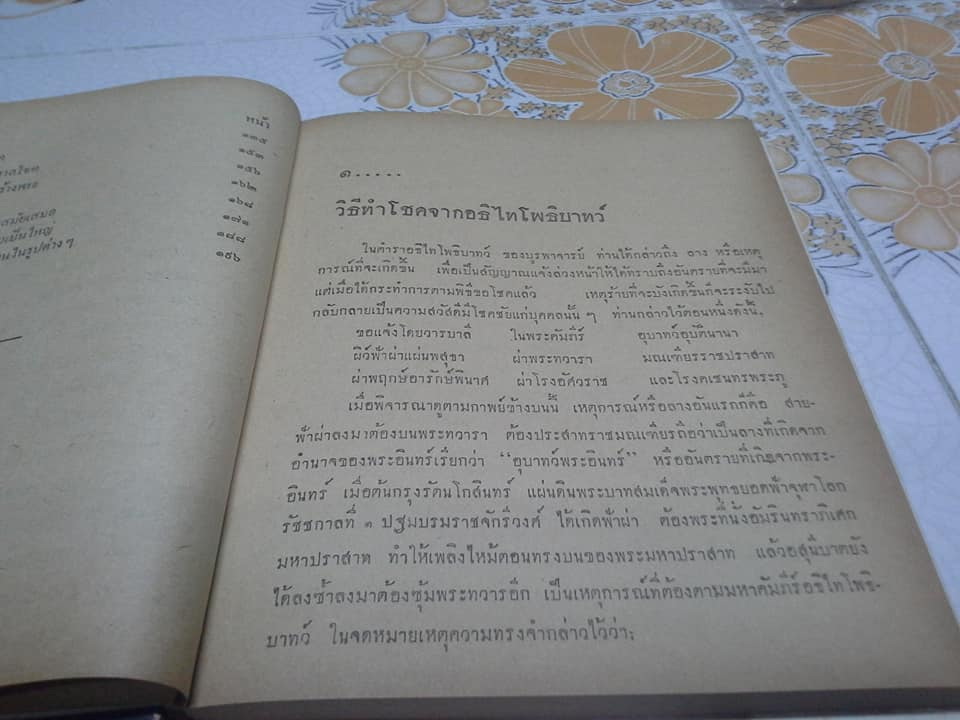 หน้า
๑๓๕
๑๕๓
๑๕๖
๑๖๒
๑๖๘
๑๗๑
๑๘๘
๑๙๖
๑.....
วิธีทำโชคจากอธิไทโพธิบาทว์
ในตำราอธิไทโพธิบาทว์ ของบูรพาจารย์ ท่านได้กล่าวถึง ลาง หรือเหตุ
การณ์ที่จะเกิดขึ้น เพื่อเป็นสัญญาณแจ้งล่วงหน้าให้ได้ทราบถึงอันตรายที่จะมีมา
แต่เมื่อได้กระทำการตามพิธีขอโชคแล้ว เหตุร้ายที่จะบังเกิดขึ้นก็จะระงับไป
กลับกลายเป็นความสวัสดีมีโชคชัยแก่บุคคลนั้น ๆ ท่านกล่าวไว้ตอนหนึ่งดังนี้.
ขอแจ้งโดยวารบาลี ในพระคัมภีร์ อุบาทว์อุบัตินานา
ผิว์ฟ้าผ่าแผ่นพสุธา ผ่าพระทวารา มณเฑียรราชปราสาท
ผ่าพฤกษ์อารักษ์พินาศ ผ่าโรงอัศวราช และโรงคเชนทรพระภู
เมื่อพิจารณาดูตามกาพย์ข้างบนนี้ เหตุการณ์หรือลางอันแรกก็คือ สาย-
ฟ้าผ่าลงมาต้องบนพระทวารา ต้องประสาทราชมณเฑียรถือว่าเป็นลางที่เกิดจาก
อำนาจของพระอินทร์เรียกว่า “อุบาทว์พระอินทร์” หรืออันตรายที่เกิดจากพระ-
อินทร์ เมื่อต้นกรุงรัตนโกสินทร์ แผ่นดินพระบาทสมเด็จพระพุทธยอดฟ้าจุฬาโลก
รัชชกาลที่ ๑ ปฐมบรมราชจักรีวงศ์ ได้เกิดฟ้าผ่า ต้องพระที่นั่งอัมรินทราภิเศก
มหาปราสาท ทำให้เพลิงไหม้ตอนทรงบนของพระมหาปราสาท แล้วอสุนีบาตยัง
ได้ลงซ้ำลงมาต้องซุ้มพระทวารอีก เป็นเหตุการณ์ที่ต้องตามมหาคัมภีร์อธิไทโพธิ-
บาทว์ ในจดหมายเหตุความทรงจำกล่าวไว้ว่า: